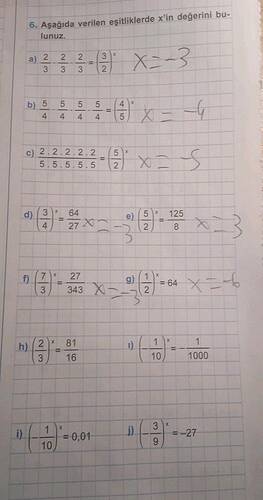 6. Aşağıda verilen eşitliklerde x'in değerini bu-
lunuz.
a) 2/3 . 2/3 . 2/3 = (3/2)^x x = -3
b) 5/4 . 5/4 . 5/4 . 5/4 = (4/5)^x x = -4
c) 2 . 2 . 2 . 2 . 2 / 5 . 5 . 5 . 5 . 5 = (5/2)^x x = -5
d) (3/4)^x = 64/27 x = -3 e) (5/2)^x = 125/8 x = 3
f) (7/3)^x = 27/343 x = -3 g) (1/2)^x = 64 x = -6
h) (2/3)^x = 81/16 ı) (-1/10)^x = -1/1000
i) (-1/10)^x = 0,01 j) (-3/9)^x = -27